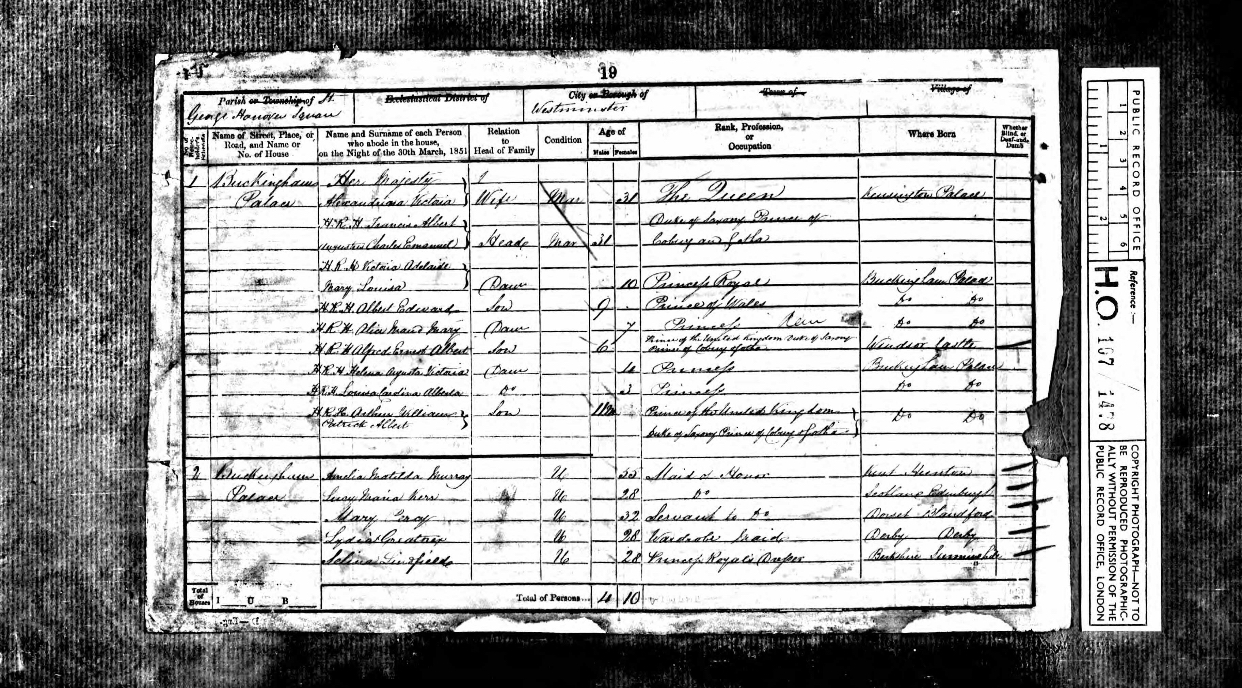 19
Parish or Township of St
George Hanover Square
Ecclesiastical District of
City or Borough of
Westminster
Town of
Village of
Name of Street, Place, or Road, and Name or No. of House
Name and Surname of each Person who abode in the house, on the Night of the 30th March, 1851
Relation to Head of Family
Condition
Age of
Males Females
Rank, Profession, or Occupation
Where Born
Whether Blind, or Deaf-and-Dumb
1 Buckingham Her Majesty
Palace Alexandrina Victoria Wife Mar 31 The Queen Kensington Palace
H.R.H. Francis Albert Duke of Saxony Prince of
Augustus Charles Emmanuel Head Mar 31 Coburg and Gotha
H.R.H. Victoria Adelaide
Mary Louisa Daur 10 Princess Royal Buckingham Palace
H.R.H. Albert Edward Son 9 Prince of Wales Do Do
H.R.H. Alice Maud Mary Daur 7 Princess Do Do
H.R.H. Alfred Ernest Albert Son 6 Prince of the United Kingdom Duke of Saxony
Prince of Coburg & Gotha Windsor Castle
H.R.H. Helena Augusta Victoria Daur 4 Princess Buckingham Palace
H.R.H. Louisa Carolina Alberta Do 3 Princess Do Do
H.R.H. Arthur William Son 11 Prince of the United Kingdom Do Do
Patrick Albert Duke of Saxony Prince of Coburg & Gotha
2 Buckingham Amelia Matilda Murray U Maid of Honor Kent Hunton
Palace Lucy Maria Kerr U 28 Do Scotland Edinburgh
Mary U 32 Servant to Do Dorset Blandford
Lydia Greatrex U 28 Wardrobe Maid Derby Derby
U 28 Princess Royals Dresser Berkshire Sunninghill
Total of Houses I U B Total of Persons... 4 10
PUBLIC RECORD OFFICE
1 2 3 4 5 6
1 2
Reference:—
H.O. 107 / 1478
COPYRIGHT PHOTOGRAPH—NOT TO
BE REPRODUCED PHOTOGRAPHIC-
ALLY WITHOUT PERMISSION OF THE
PUBLIC RECORD OFFICE, LONDON